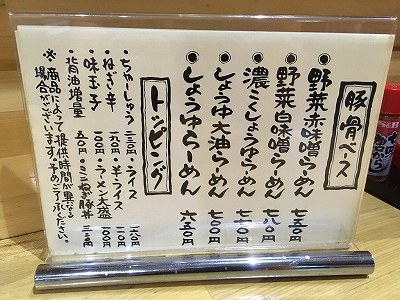 豚骨ベース
●野菜赤味噌らーめん 七五〇
●野菜白味噌らーめん 七八〇
●濃こくしょうゆらーめん 七五〇
●しょうゆ大油らーめん 七〇〇
●しょうゆらーめん 六五〇
トッピング
・ちゃーしゅう 三三〇
・ねぎ辛 一六〇
・味玉子 一一〇
・背油増量 五〇
・ライス 一六〇
・半ライス 一一〇
・ラーメン大盛 一一〇
・ミニねぎ豚丼 三三〇
※商品によって提供時間が異なる
場合がございます。予めご了承ください。